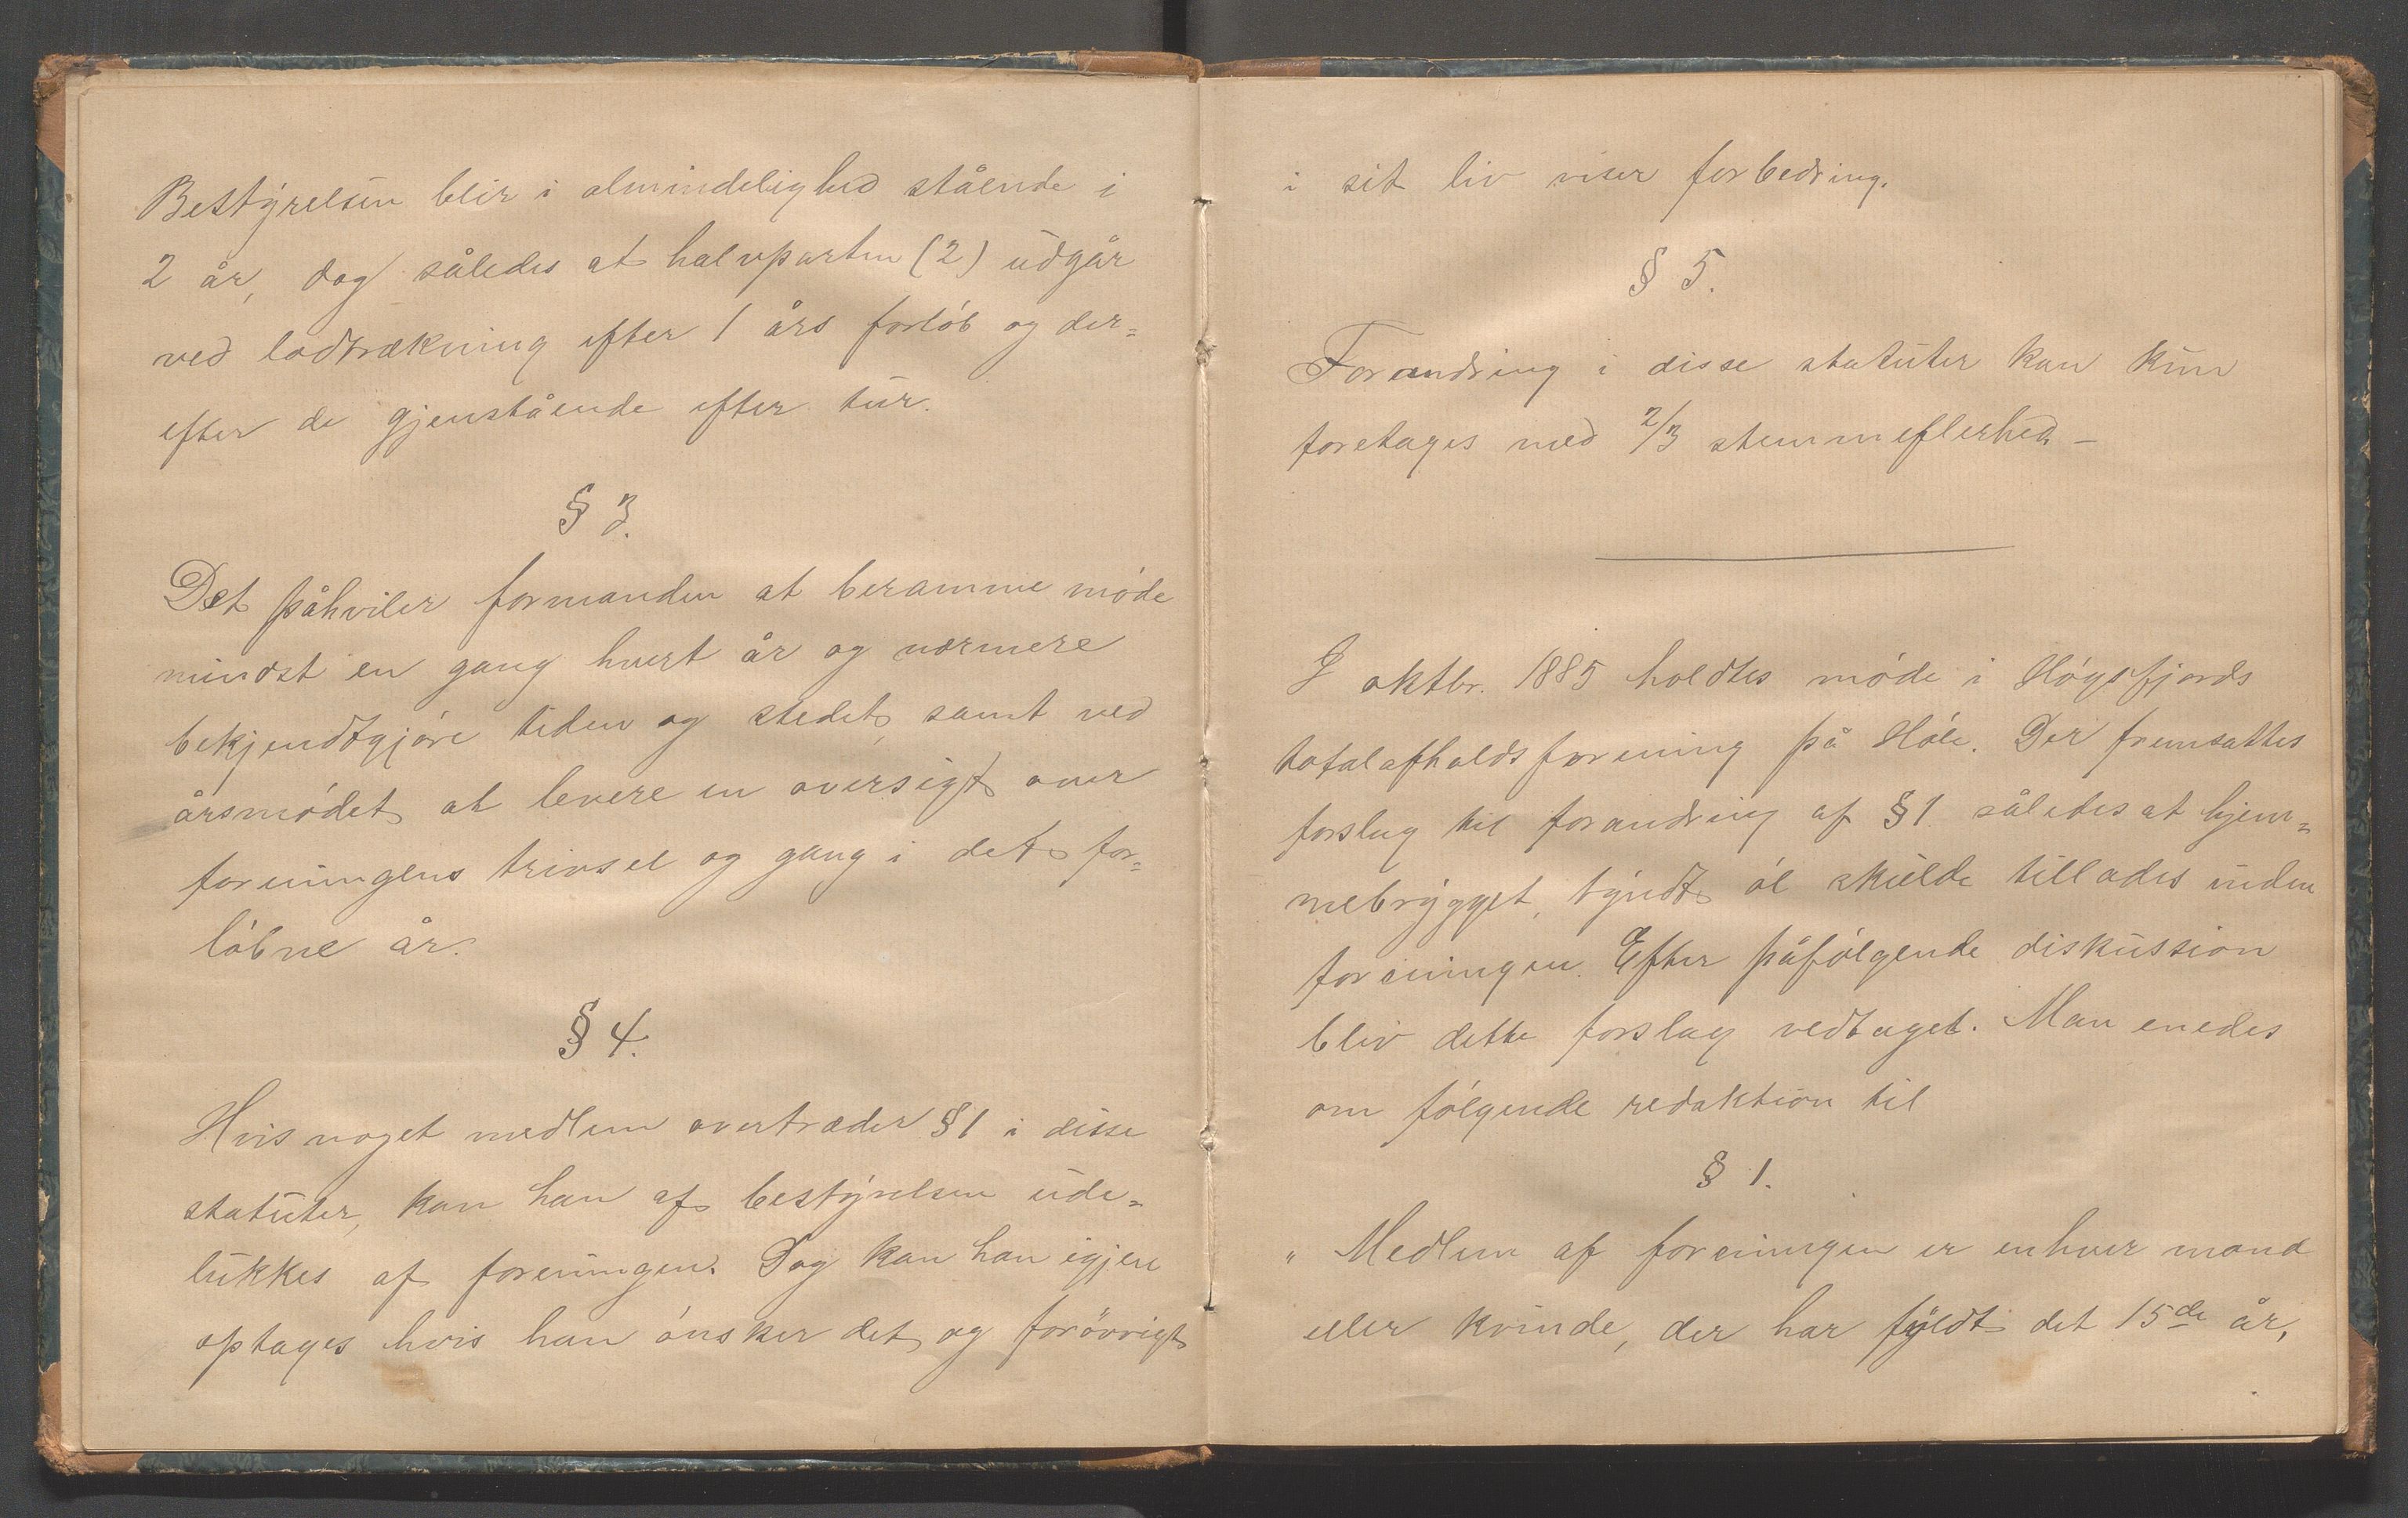 Bestyrelsen blir i almindelighed stående i
2 år, dog således at halvparten (2) udgår
ved lodtrækning efter 1 års forløb og der=
efter de gjenstående efter tur.
§ 3.
Det påhviler formanden at beramme møde
mindst en gang hvert år og nærmere
bekjendtgjøre tiden og stedet, samt ved
årsmødet at levere en oversigt over
foreningens trivsel og gang i det for=
løbne år.
§ 4.
Hvis noget medlem overtræder § 1 i disse
statuter, kan han af bestyrelsen ude=
lukkes af foreningen. Dog kan han igjen
optages hvis han ønsker det og forøvrigt
i sit liv viser forbedring.
§ 5.
Forandring i disse statuter kan kun
foretages med 2/3 stemmeflerhed –
I oktbr. 1885 holdtes møde i Høgsfjords
totalafholdsforening på Høle. Der fremsattes
forslag til forandring af § 1 således at hjem=
mebrygget, tyndt øl skulde tillades inden
foreningen. Efter påfølgende diskussion
blev dette forslag vedtaget. Man enedes
om følgende redaktion til
§ 1.
„Medlem af foreningen er enhver mand
eller kvinde, der har fyldt det 15de år,